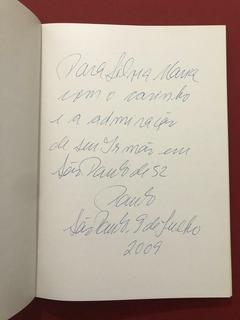 Para Silvia Maria
com o carinho
e a admiração
de seu Irmão em
São Paulo de 52
Paulo
São Paulo, 9 de Julho
2009